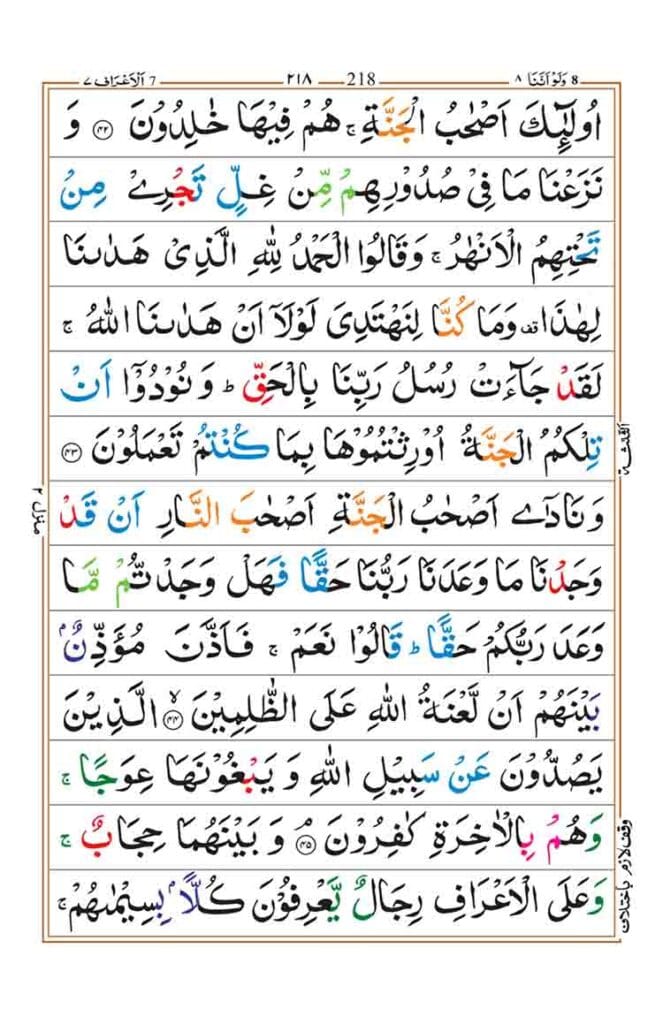 8 وَلَوْ اَنَّنَا ٨ 218 ٢١٨ 7 اَلْاَعْرَاف ٧
اُولٰٓئِكَ اَصْحٰبُ الْجَنَّةِ ۚ هُمْ فِيْهَا خٰلِدُوْنَ ﴿۴۲﴾ وَ
نَزَعْنَا مَا فِيْ صُدُوْرِهِمْ مِّنْ غِلٍّ تَجْرِيْ مِنْ
تَحْتِهِمُ الْاَنْهٰرُ ۚ وَقَالُوا الْحَمْدُ لِلّٰهِ الَّذِيْ هَدٰىنَا
لِهٰذَا ۫ وَمَا كُنَّا لِنَهْتَدِيَ لَوْلَاۤ اَنْ هَدٰىنَا اللّٰهُ ۚ
لَقَدْ جَآءَتْ رُسُلُ رَبِّنَا بِالْحَقِّ ؕ وَنُوْدُوْۤا اَنْ
تِلْكُمُ الْجَنَّةُ اُوْرِثْتُمُوْهَا بِمَا كُنْتُمْ تَعْمَلُوْنَ ﴿۴۳﴾
وَنَادٰٓى اَصْحٰبُ الْجَنَّةِ اَصْحٰبَ النَّارِ اَنْ قَدْ
وَجَدْنَا مَا وَعَدَنَا رَبُّنَا حَقًّا فَهَلْ وَجَدْتُّمْ مَّا
وَعَدَ رَبُّكُمْ حَقًّا ؕ قَالُوْا نَعَمْ ۚ فَاَذَّنَ مُؤَذِّنٌۢ
بَيْنَهُمْ اَنْ لَّعْنَةُ اللّٰهِ عَلَى الظّٰلِمِيْنَ ﴿۴۴﴾ۙ الَّذِيْنَ
يَصُدُّوْنَ عَنْ سَبِيْلِ اللّٰهِ وَيَبْغُوْنَهَا عِوَجًا ۚ
وَهُمْ بِالْاٰخِرَةِ كٰفِرُوْنَ ﴿۴۵﴾ۘ وَبَيْنَهُمَا حِجَابٌ ۚ
وَعَلَى الْاَعْرَافِ رِجَالٌ يَّعْرِفُوْنَ كُلًّاۢ بِسِيْمٰىهُمْ ۚ
الثلثة
منزل ٢
وقف لازم باختلاف